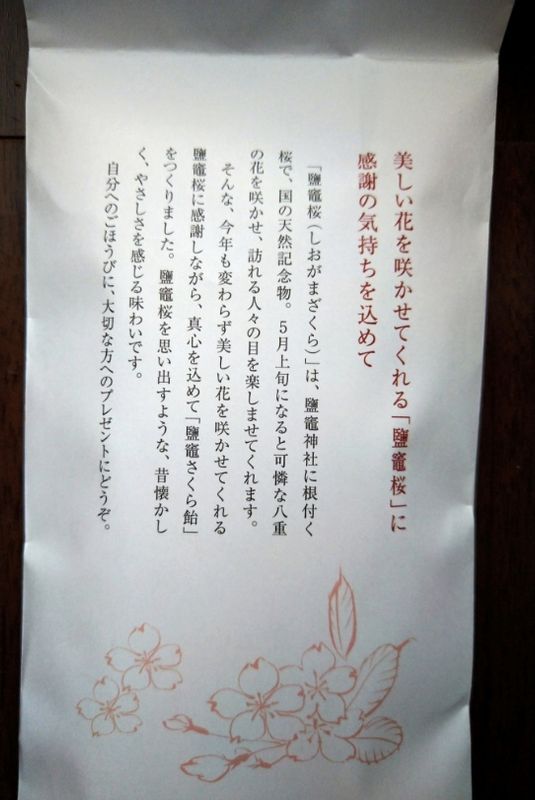 美しい花を咲かせてくれる「鹽竈桜」に
感謝の気持ちを込めて
「鹽竈桜（しおがまざくら）」は、鹽竈神社に根付く
桜で、国の天然記念物。５月上旬になると可憐な八重
の花を咲かせ、訪れる人々の目を楽しませてくれます。
そんな、今年も変わらず美しい花を咲かせてくれる
鹽竈桜に感謝しながら、真心を込めて「鹽竈さくら飴」
をつくりました。鹽竈桜を思い出すような、昔懐かし
く、やさしさを感じる味わいです。
自分へのごほうびに、大切な方へのプレゼントにどうぞ。